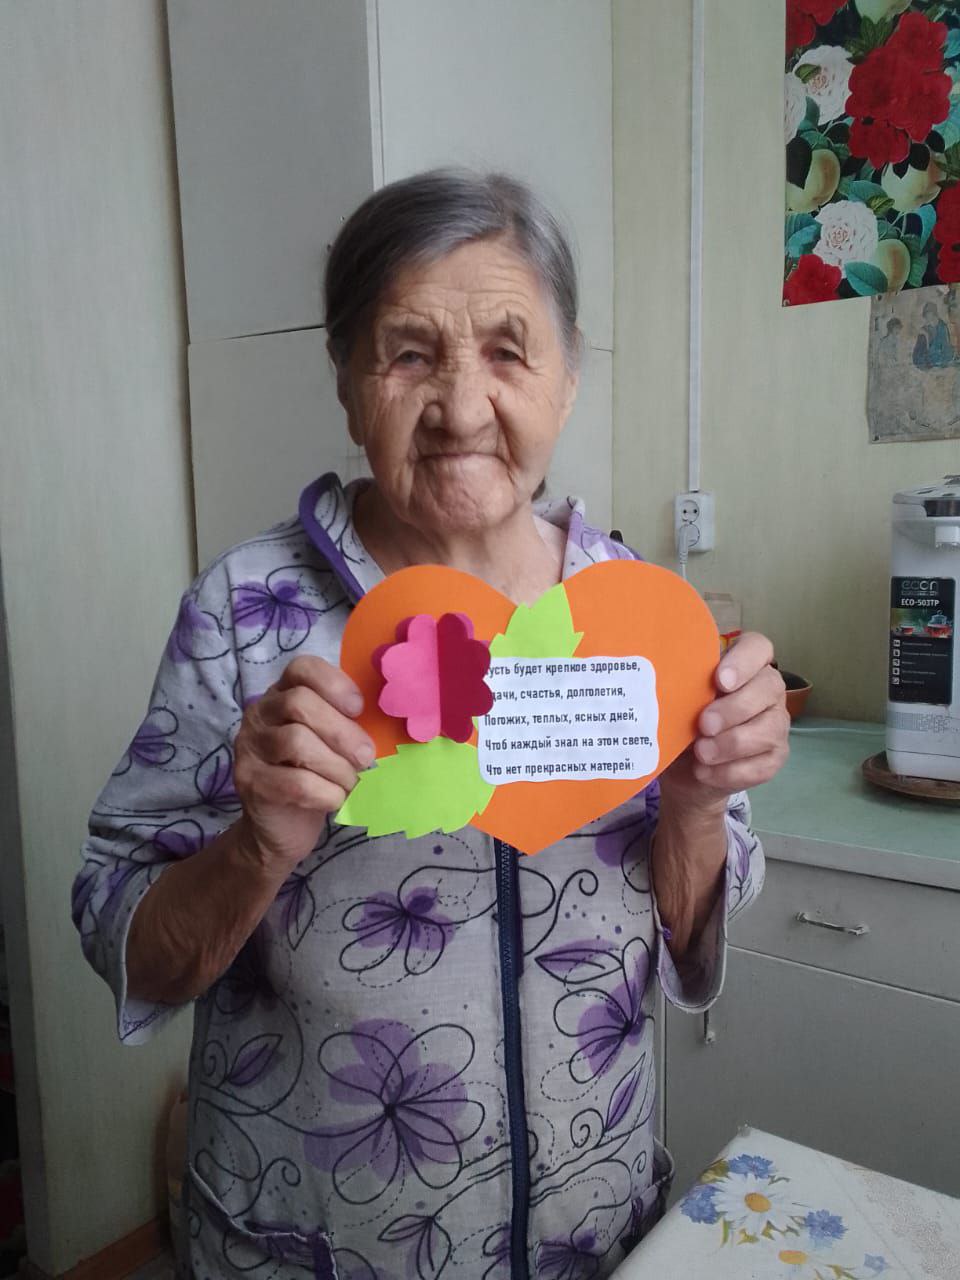 усть будет крепкое здоровье,
дачи, счастья, долголетия,
Погожих, теплых, ясных дней,
Чтоб каждый знал на этом свете,
Что нет прекрасных матерей!
econ
ECO-503TP